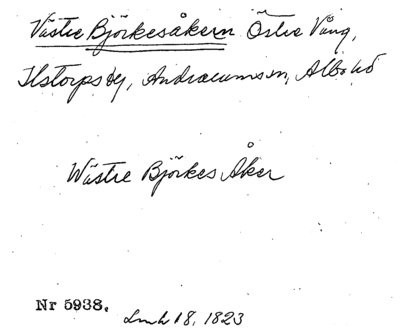 Västre Björkesåkern Östre Vång,
Ilstorps by, Andrarums sn, Albo hd
Wästre Björkes Åker
Nr 5938.
Lmh 18, 1823